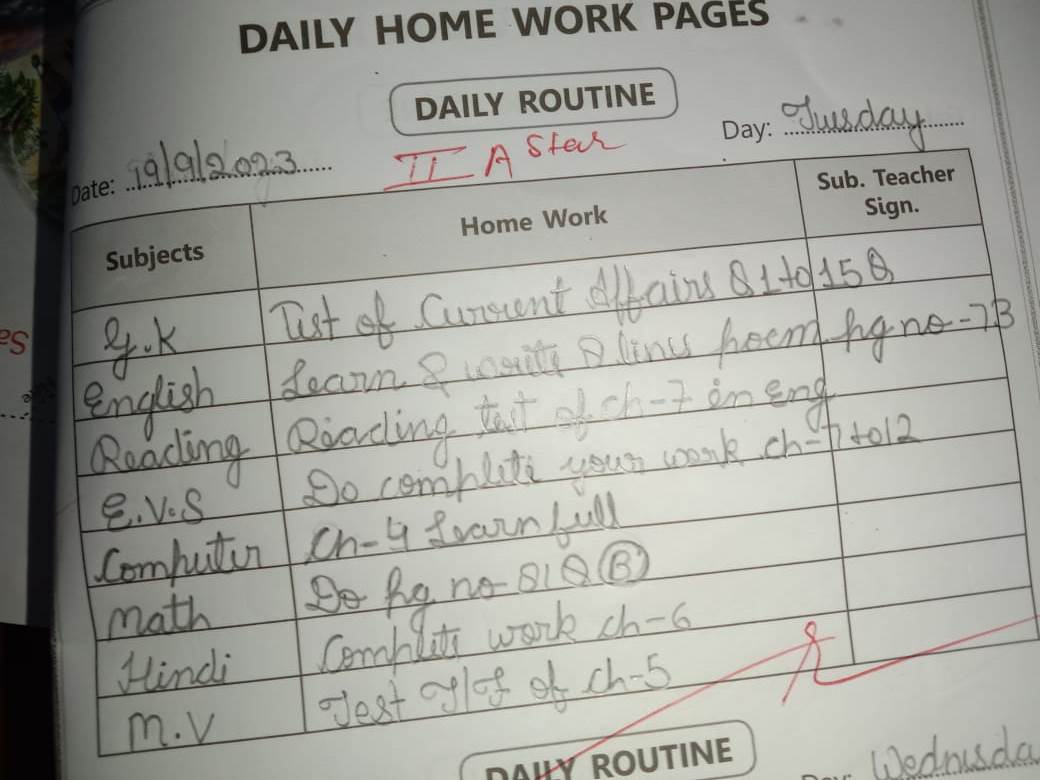 DAILY HOME WORK PAGES
DAILY ROUTINE
Date: 19/9/2023 II A Star Day: Tuesday
Subjects Home Work Sub. Teacher Sign.
G.K Test of Current Affairs Q1 to 15 Q
English Learn & write 8 lines poem pg no-73
Reading Reading test of ch-7 in Eng
E.V.S Do complete your work ch-7 to 12
Computer Ch-4 Learn full
Math Do pg no 81 Q (B)
Hindi Complete work ch-6
M.V Test T/F of ch-5
DAILY ROUTINE
Wednesda